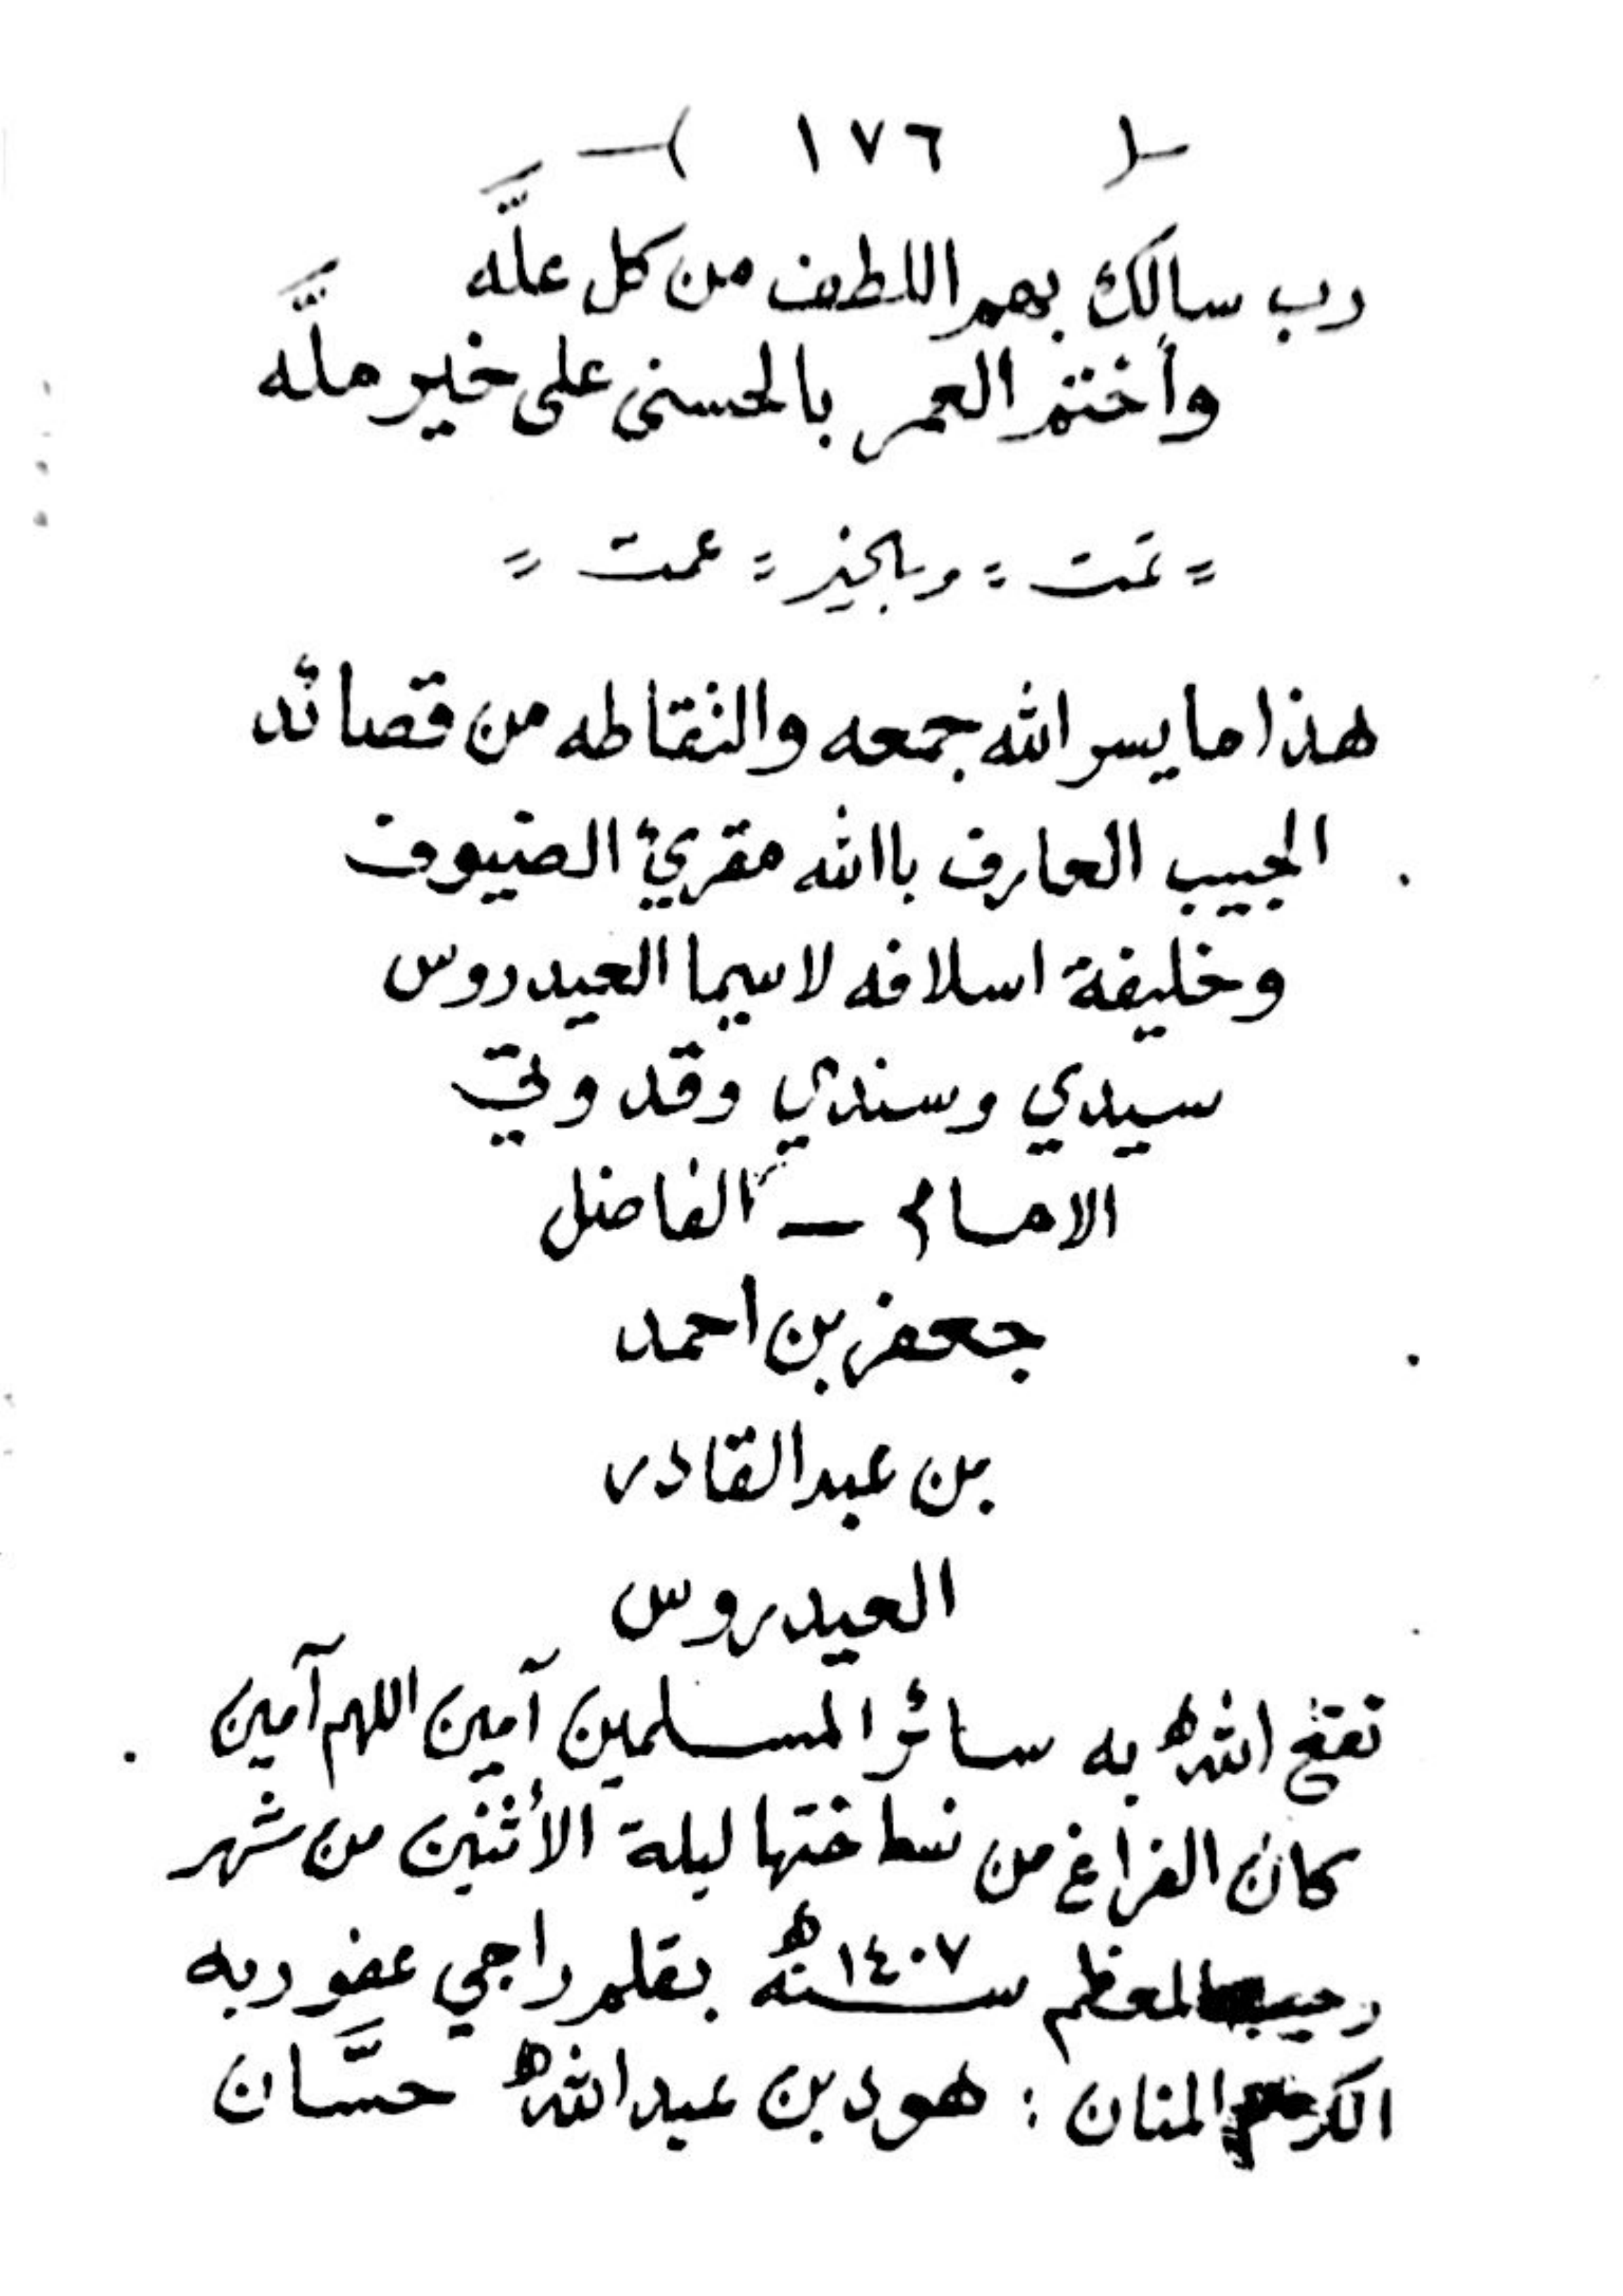 ( ١٧٦ )
رب سالك بهم اللطف من كل علَّه
وأختم العمر بالحسنى على خير ملَّه
= تمت = وبالخير = عمت =
هذا ما يسر الله جمعه والتقاطه من قصائد
الحبيب العارف باالله مقريئ الضيوف
وخليفة اسلافه لاسيما العيدروس
سيدي وسندي وقدوتي
الامام — الفاضل
جعفر بن احمد
بن عبدالقادر
العيدروس
نفع الله به سائر المسلمين آمين اللهم آمين
كان الفراغ من نساختها ليلة الأثنين من شهر
رجب المعظم سنة ١٤٠٧ھ بقلم راجي عفو ربه
الكريم المنان : هود بن عبدالله حسَّان